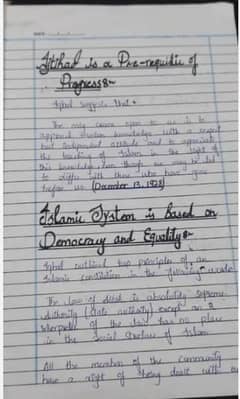 DATE:
Ijtihad is a Pre-requidie of
Progress:-
Iqbal suggests that:
The only course open to us is to
approach modern knowledge with a respect
but independent attitude and to appreciate
the teaching of Islam in the light of
this knowledge even though we may be led
to differ with those who have gone
before us (December 13, 1928)
Islamic System is based on
Democracy and Equality:-
Iqbal outlined two principles of an
Islamic constitution in the following words:
The law of Allah is absolutely supreme
authority except as a
interpreter of the law has no place
in the Social Structure of Islam
All the members of the community
have a right of being dealt with